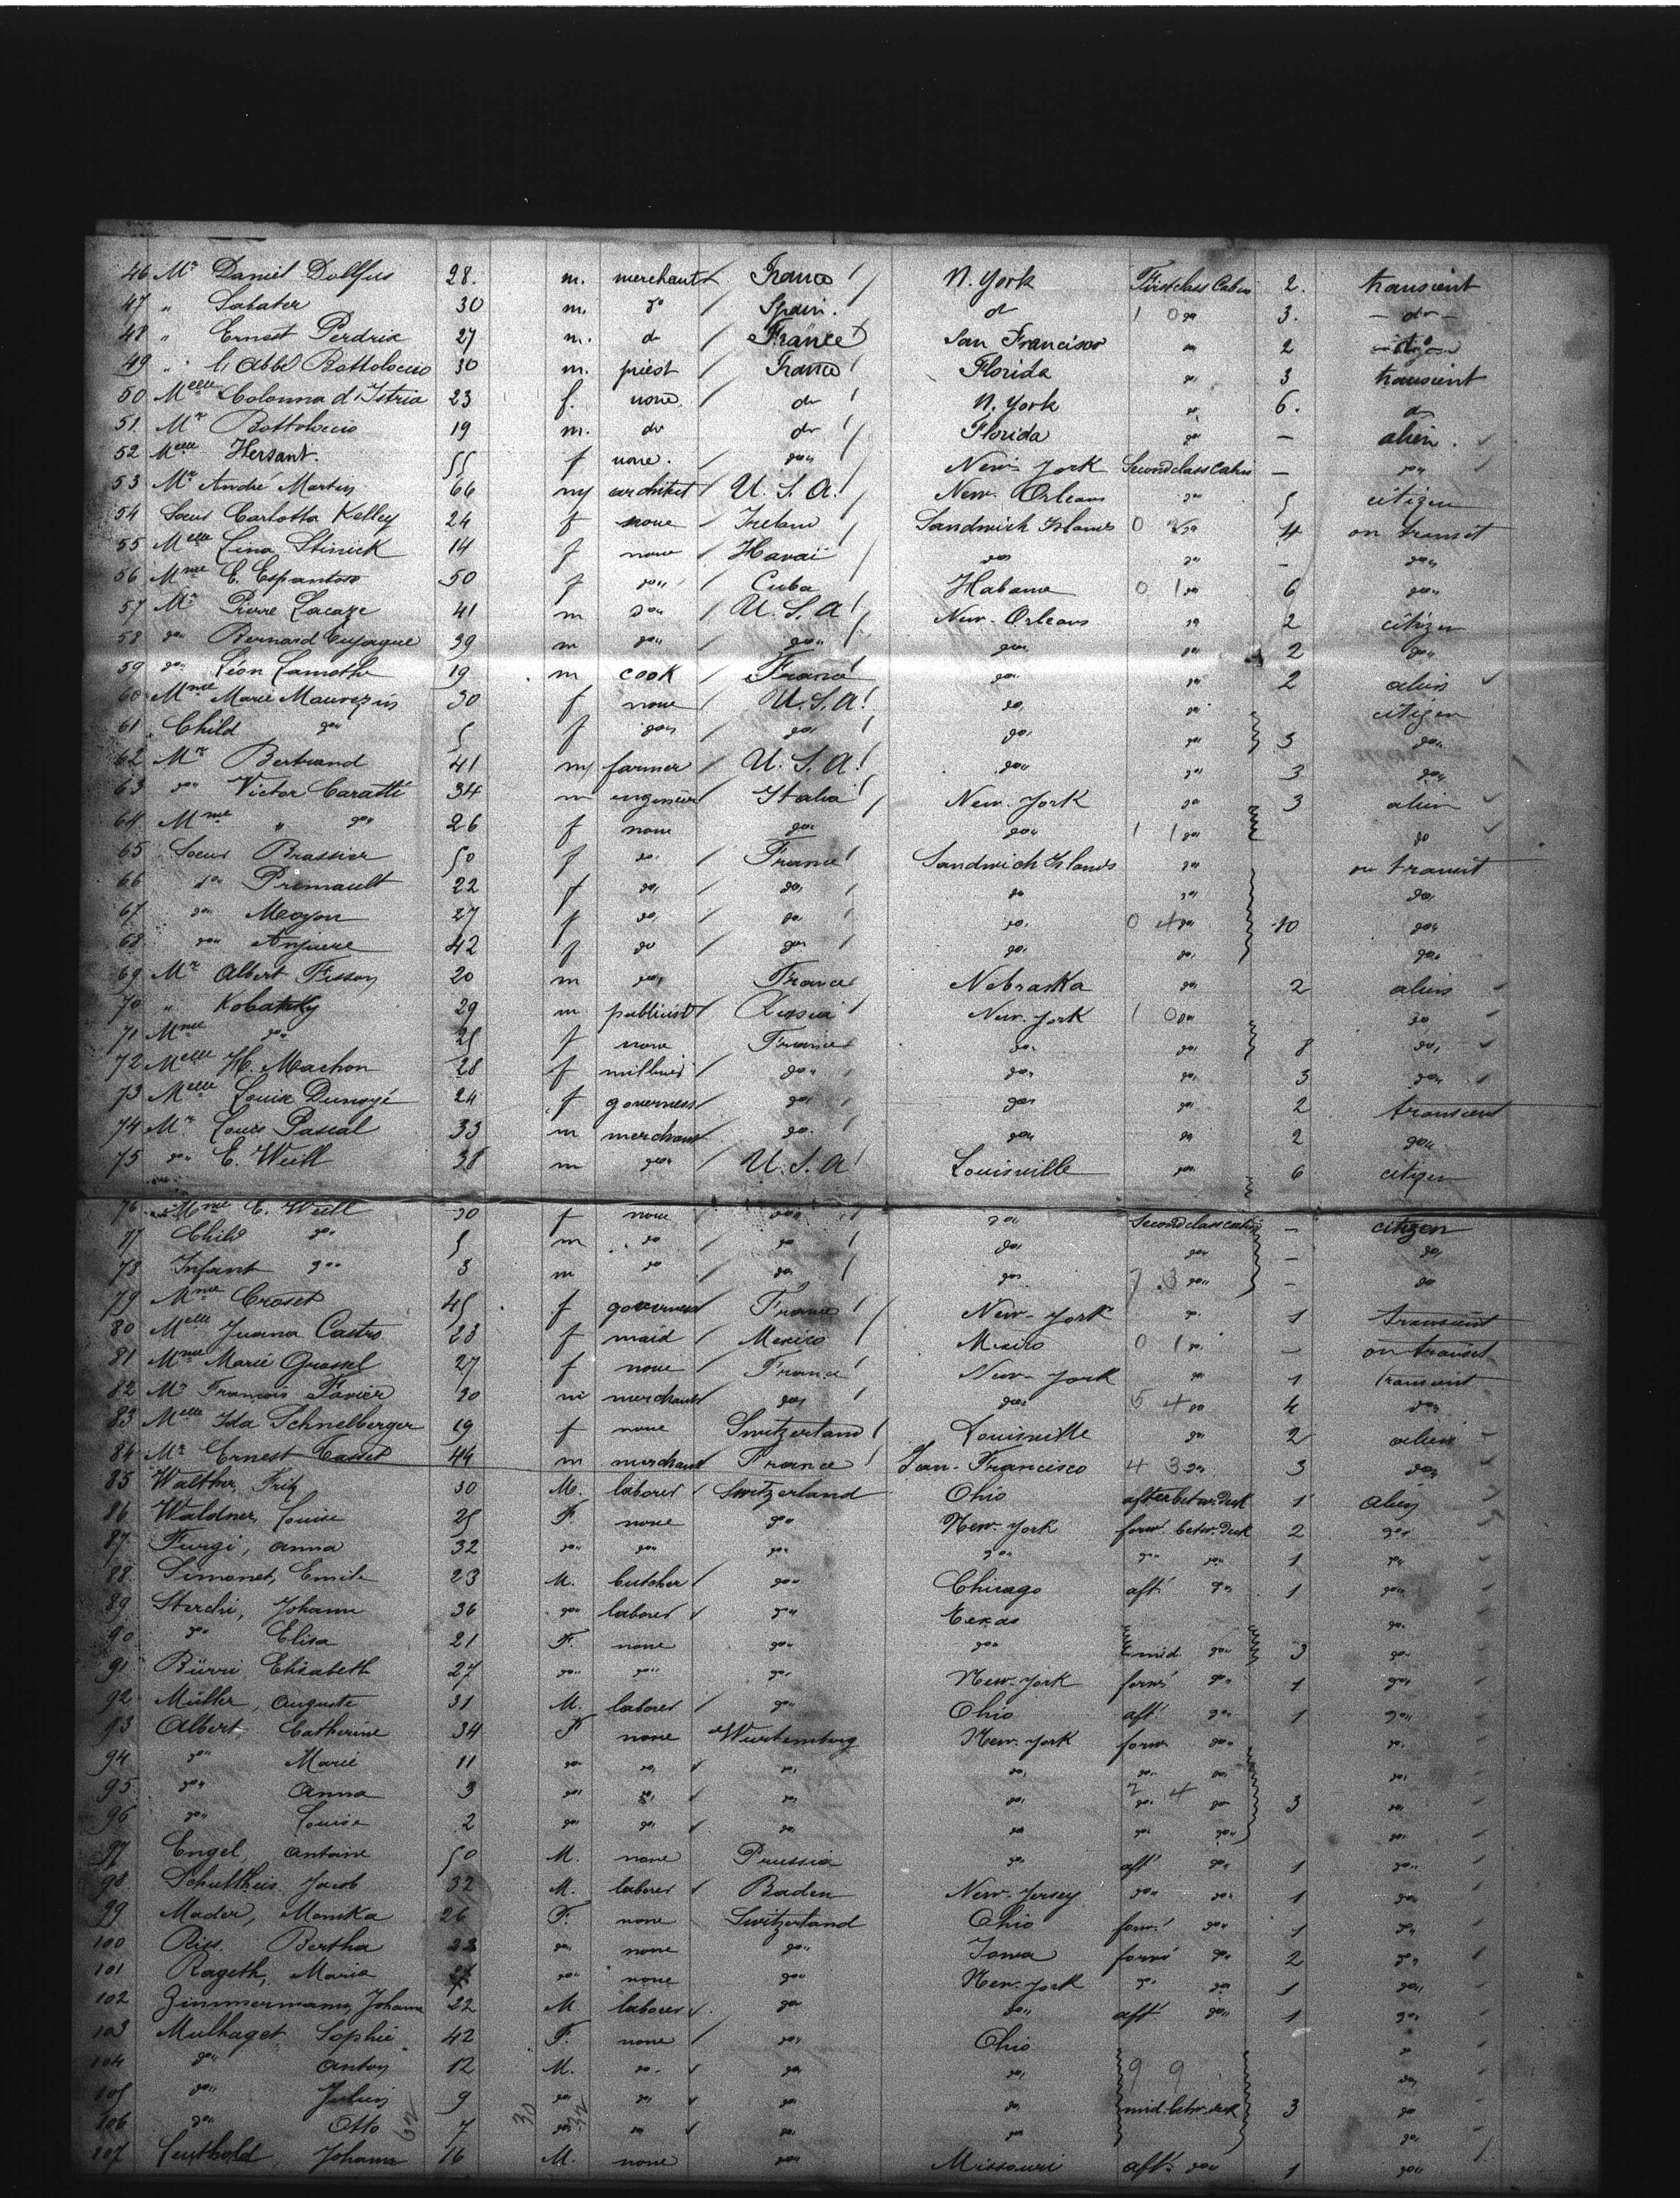 46 Mr Daniel Dollfus 28. m. merchant France N. York First class Cabin 2. transient
47 " Sabater 30 m. do Spain. do 1 0 do 3. - do -
48 " Ernest Perdrix 27 m. do France San Francisco do 2 do
49 " L'Abbé Bottolaccio 30 m. priest France Florida do 3 transient
50 Melle Colonna d'Istria 23 f. none. do N. York do 6. do
51. Mr Bottolaccio 19 m. do do Florida do - alien.
52 Melle Hersant. 55 f none. do New-York Second class Cabin - do
53 Mr André Martin 66 m architect U. S. A. New-Orleans do 5 citizen
54 Soeur Carlotta Kelley 24 f none Ireland Sandwich Islands 0 2 do 4 on transit
55 Melle Lina Stinick 14 f none Havaï do do - do
56 Mme E. Espantoso 50 f do Cuba Habana 0 1 do 6 do
57 Mr Pierre Lacaze 41 m do U. S. A. New-Orleans do 2 citizen
58 do Bernard Cujaque 39 m do do do do 2 do
59 do Léon Lamothe 19 m cook France do do 2 alien
60 Mme Marie Mauvezin 30 f none U. S. A. do do citizen
61 Child do 5 f do do do do 3 do
62 Mr Bertrand 41 m farmer U. S. A. do do 3 do
63 do Victor Caratti 34 m engineer Italia New-York do 3 alien
64 Mme " do 26 f none do do 1 1 do do
65 Soeur Brassier 50 f do France Sandwich Islands do on transit
66 do Premault 22 f do do do do do
67 do Meoyon 27 f do do do 0 4 do 10 do
68 do Anjuere 42 f do do do do do
69 Mr Albert Fisson 20 m do France Nebraska do 2 alien
70 " Kobatzky 29 m publicist Russia New-York 1 0 do do
71 Mme do 25 f none France do do 8 do
72 Melle H. Machon 28 f milliner do do do 3 do
73 Melle Louise Dunoyé 24 f governess do do do 2 transient
74 Mr Louis Pascal 33 m merchant do do do 2 do
75 do E. Weill 38 m do U. S. A Louisville do 6 citizen
76 Mme E. Weill 30 f none do do Second class cabin - citizen
77 Child do 5 m do do do do - do
78 Infant do 3 m do do do 7 3 do - do
79 Mme Croset 45 f governess France New-York do 1 transient
80 Melle Juana Castro 23 f maid Mexico Mexico 0 1 do - on transit
81 Mme Marie Grassel 27 f none France New-York do 1 transient
82 Mr Francois Favier 30 m merchant do do 5 4 do 4 do
83 Melle Ida Schnelberger 19 f none Switzerland Louisville do 2 alien
84 Mr Ernest Casset 44 m merchant France San-Francisco 4 3 do 3 do
85 Walther, Fritz 30 M. laborer Switzerland Ohio after betw. deck 1 alien
86 Waldner, Louise 25 F. none do New-York forw. betw. deck 2 do
87 Furgi, Anna 32 do do do do do do 1 do
88 Simonet, Emile 23 M. butcher do Chicago aft. do 1 do
89 Sterchi, Johann 36 do laborer do Texas do
90 do Elisa 21 F. none do do mid do 3 do
91 Bürri, Elisabeth 27 do do do New-York forw. do 1 do
92 Müller, Auguste 31 M. laborer do Ohio aft. do 1 do
93 Albert, Catherine 34 F none Wurtemberg New-York forw. do do
94 do Marie 11 do do do do do do do
95 do Anna 3 do do do do 2 4 do do 3 do
96 do Louise 2 do do do do do do do
97 Engel, Antoine 50 M. none Prussia do aft do 1 do
98 Schultheis Jacob 32 M. laborer Baden New-Jersey do do 1 do
99 Mader, Monika 26 F. none Switzerland Ohio forw. do 1 do
100 Riss Bertha 23 do none do Iowa forw. do 2 do
101 Rageth, Maria do none do New-York do do 1 do
102 Zimmermann, Johann 22 M laborer do do aft do 1 do
103 Mulhaget Sophie 42 F. none do Ohio do
104 do Anton 12 M. do do do 9 9 do
105 do Julius 9 do do do do mid. betw. deck 3 do
106 do Otto 7 do do do do do
107 Leuthold, Johann 16 M. none do Missouri aft. do 1 do
62 30 32